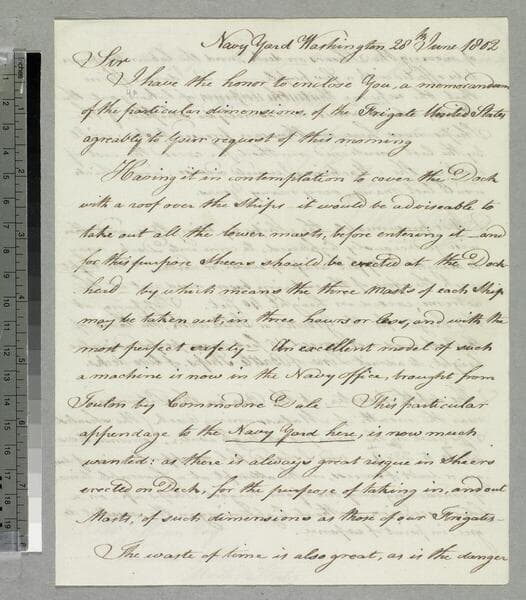 Navy Yard Washington 28th June 1802
Sir
I have the honor to enclose You, a memorandum
of the particular dimensions, of the Frigate United States
agreably to Your request of this morning
Having it in contemplation to cover the Dock
with a roof over the Ships it would be adviseable to
take out all the lower masts, before entering it — and
for this purpose Sheers should be erected at the Dock
head by which means the three Masts of each Ship
may be taken out, in three hours or less, and with the
most perfect safety An excellent model of such
a machine is now in the Navy office, brought from
Toulon by Commodore Dale — This particular
appendage to the Navy Yard here, is now much
wanted: as there is always great risque in Sheers
erected on Deck, for the purpose of taking in, and out
Masts, of such dimensions as those of our Frigates —
The waste of time is also great, as is the danger